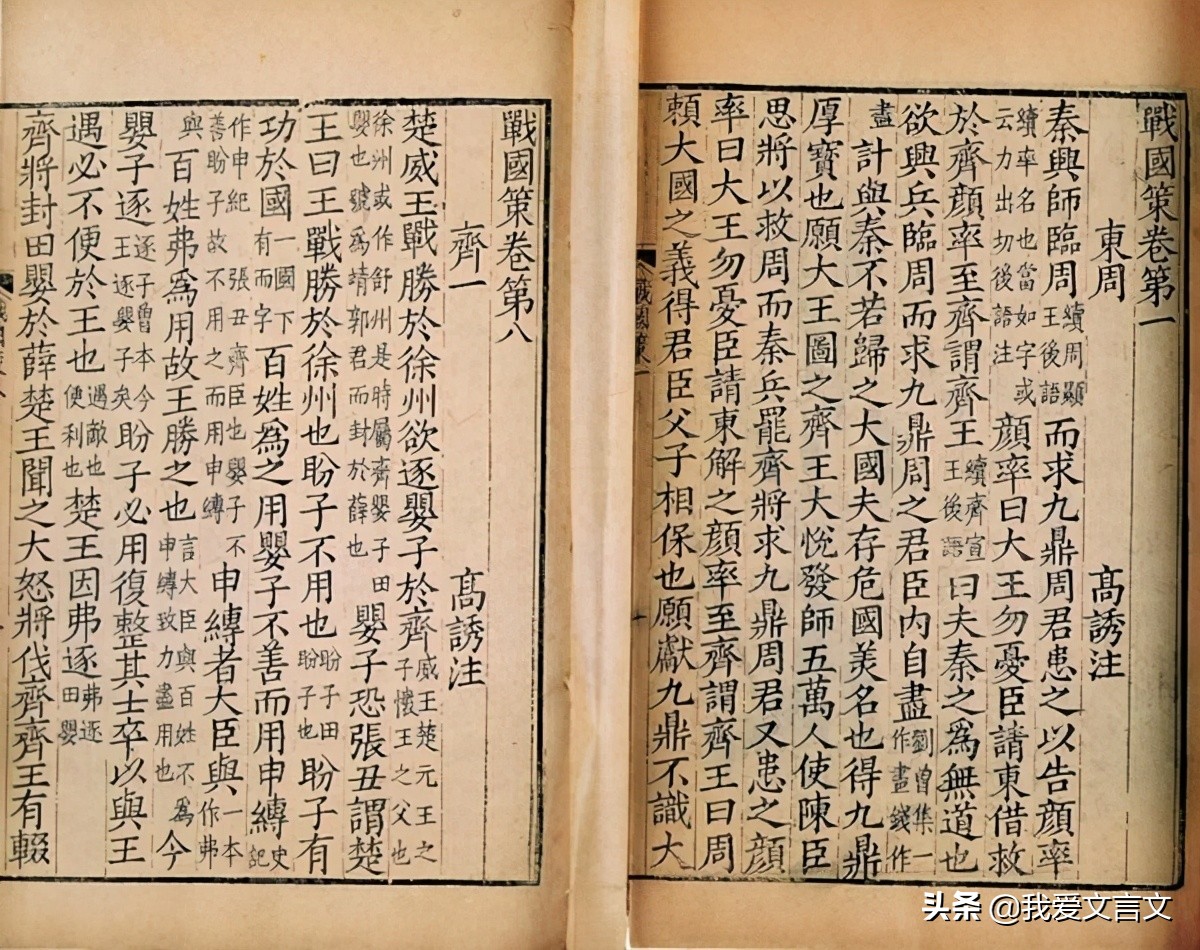 戰國策卷第一
東周 高誘注
秦興師臨周續周顯王後語而求九鼎周君患之以告顏率
續率名也當如字或云力出切後語注顏率曰大王勿憂臣請東借救
於齊顏率至齊謂齊王續齊宣王後語曰夫秦之為無道也
欲興兵臨周而求九鼎周之君臣內自盡劉曾集一作畫錢作
盡計與秦不若歸之大國夫存危國美名也得九鼎
厚寶也願大王圖之齊王大悅發師五萬人使陳臣
思將以救周而秦兵罷齊將求九鼎周君又患之顏
率曰大王勿憂臣請東解之顏率至齊謂齊王曰周
賴大國之義得君臣父子相保也願獻九鼎不識大
戰國策卷第八
齊一 高誘注
楚威王戰勝於徐州欲逐嬰子於齊威王楚元王之子懷王之父也
徐州或作舒州是時屬齊嬰子田嬰也號為靖郭君而封於薛也嬰子恐張丑謂楚
王曰王戰勝於徐州也盼子不用也盼子田盼子也盼子有
功於國一國下有而字百姓為之用嬰子不善而用申縳史記
作申紀張丑齊臣也嬰子不善盼子故不用之而用申縳申縳者大臣與一本作弗
與百姓弗為用故王勝之也言大臣與百姓不為申縳致力盡用也今
嬰子逐逐子曾本今王逐嬰子矣盼子必用復整其士卒以與王
遇必不便於王也遇敵也便利也楚王因弗逐弗逐田嬰
齊將封田嬰於薛楚王聞之大怒將伐齊齊王有輟
头条 @我爱文言文